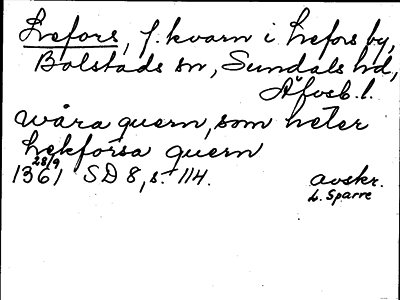 Hefors, f. kvarn i Hefors by,
Bolstads sn, Sundals hd,
Älvsb. l.
wåra quern, som heter
hekforsa quern
28/9
1361 SD 8, s. 114.
avskr.
L. Sparre